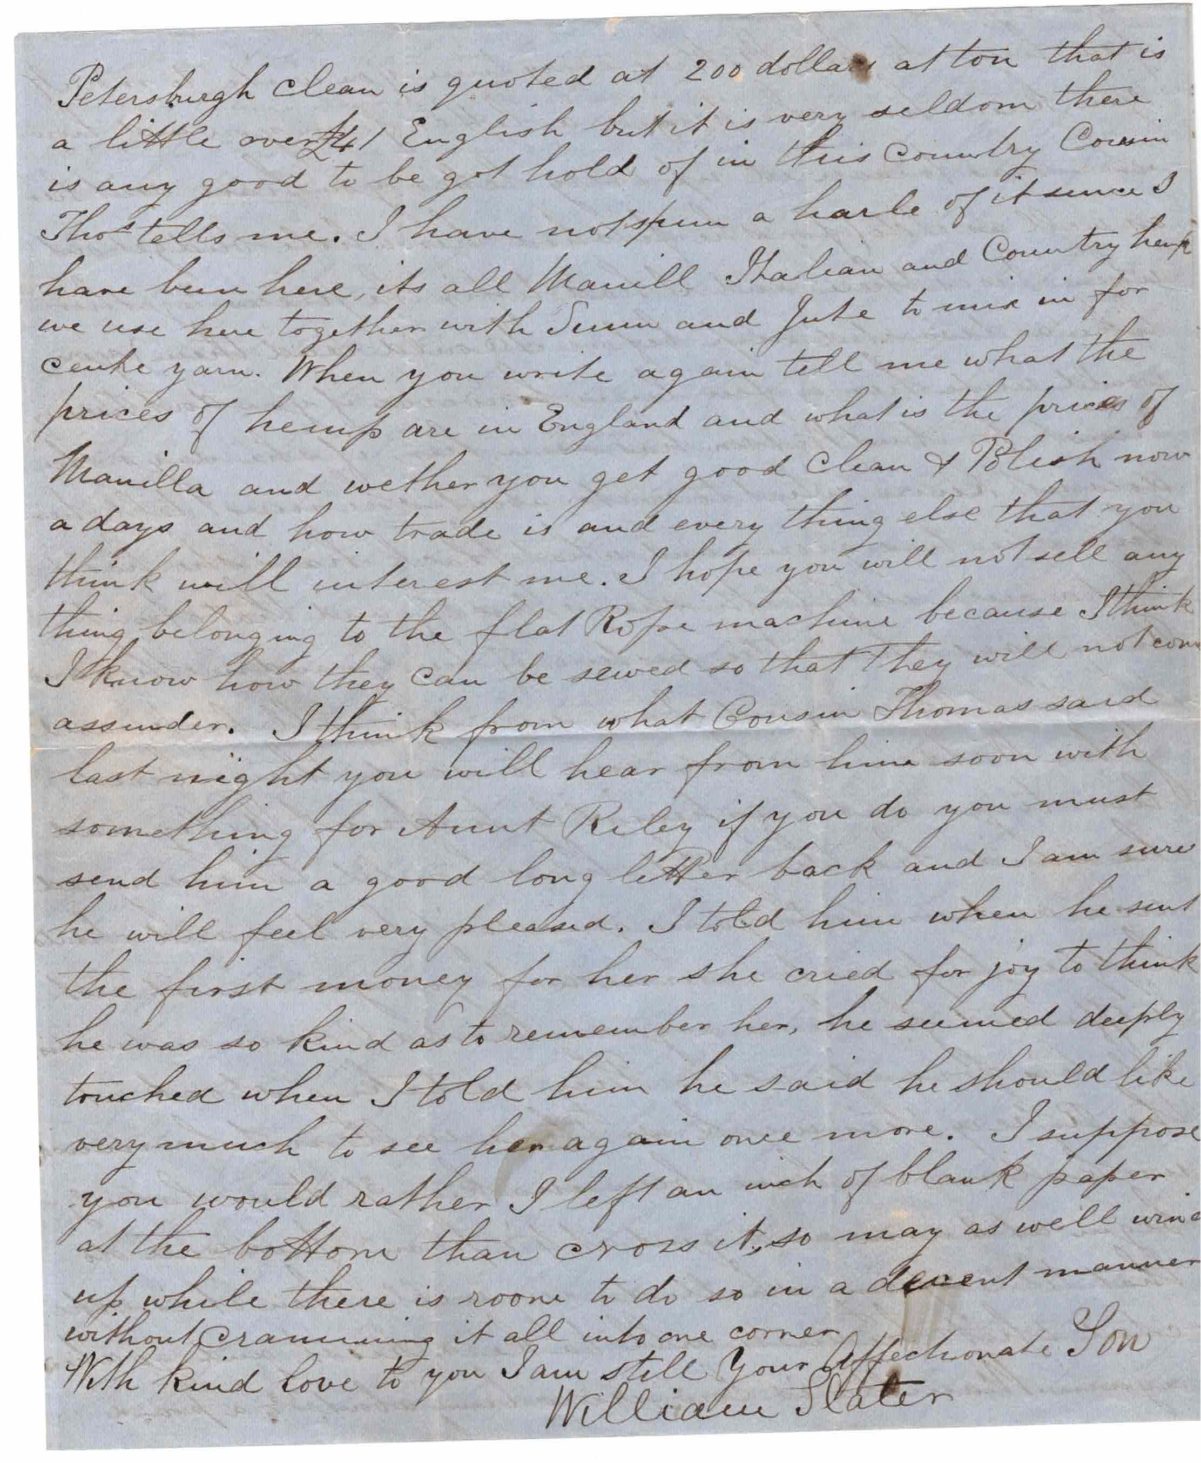 Petersburgh clean is quoted at 200 dollars at ton that is
a little over £41 English but it is very seldom there
is any good to be got hold of in this Country Cousin
Thos tells me. I have not spun a harle of it since I
have been here, its all Manill Italian and Country hemp
we use here together with Sunn and Jute to mix in for
centre yarn. When you write again tell me what the
prices of hemp are in England and what is the prices of
Manilla and wether you get good Clean & Polish now
a days and how trade is and every thing else that you
think will interest me. I hope you will not sell any
thing belonging to the flat Rope machine because I think
I know how they can be sewed so that they will not come
assunder. I think from what Cousin Thomas said
last night you will hear from him soon with
something for Aunt Riley if you do you must
send him a good long letter back and I am sure
he will feel very pleased. I told him when he sent
the first money for her she cried for joy to think
he was so kind as to remember her, he seemed deeply
touched when I told him he said he should like
very much to see her again once more. I suppose
you would rather I left an inch of blank paper
at the bottom than cross it, so may as well wind
up while there is room to do so in a decent manner
without cramming it all into one corner
With kind love to you I am still Your Affectionate Son
William Slater